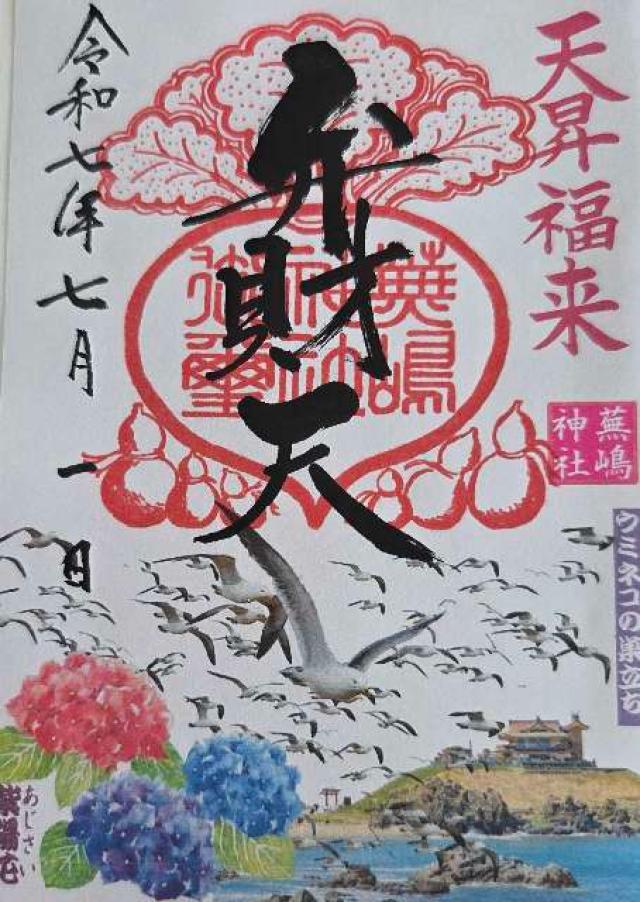 天昇福来
蕪嶋
神社
ウミネコの巣立ち
弁財天
蕪嶋
神社
御璽
令和七年七月一日
あじさい
紫陽花